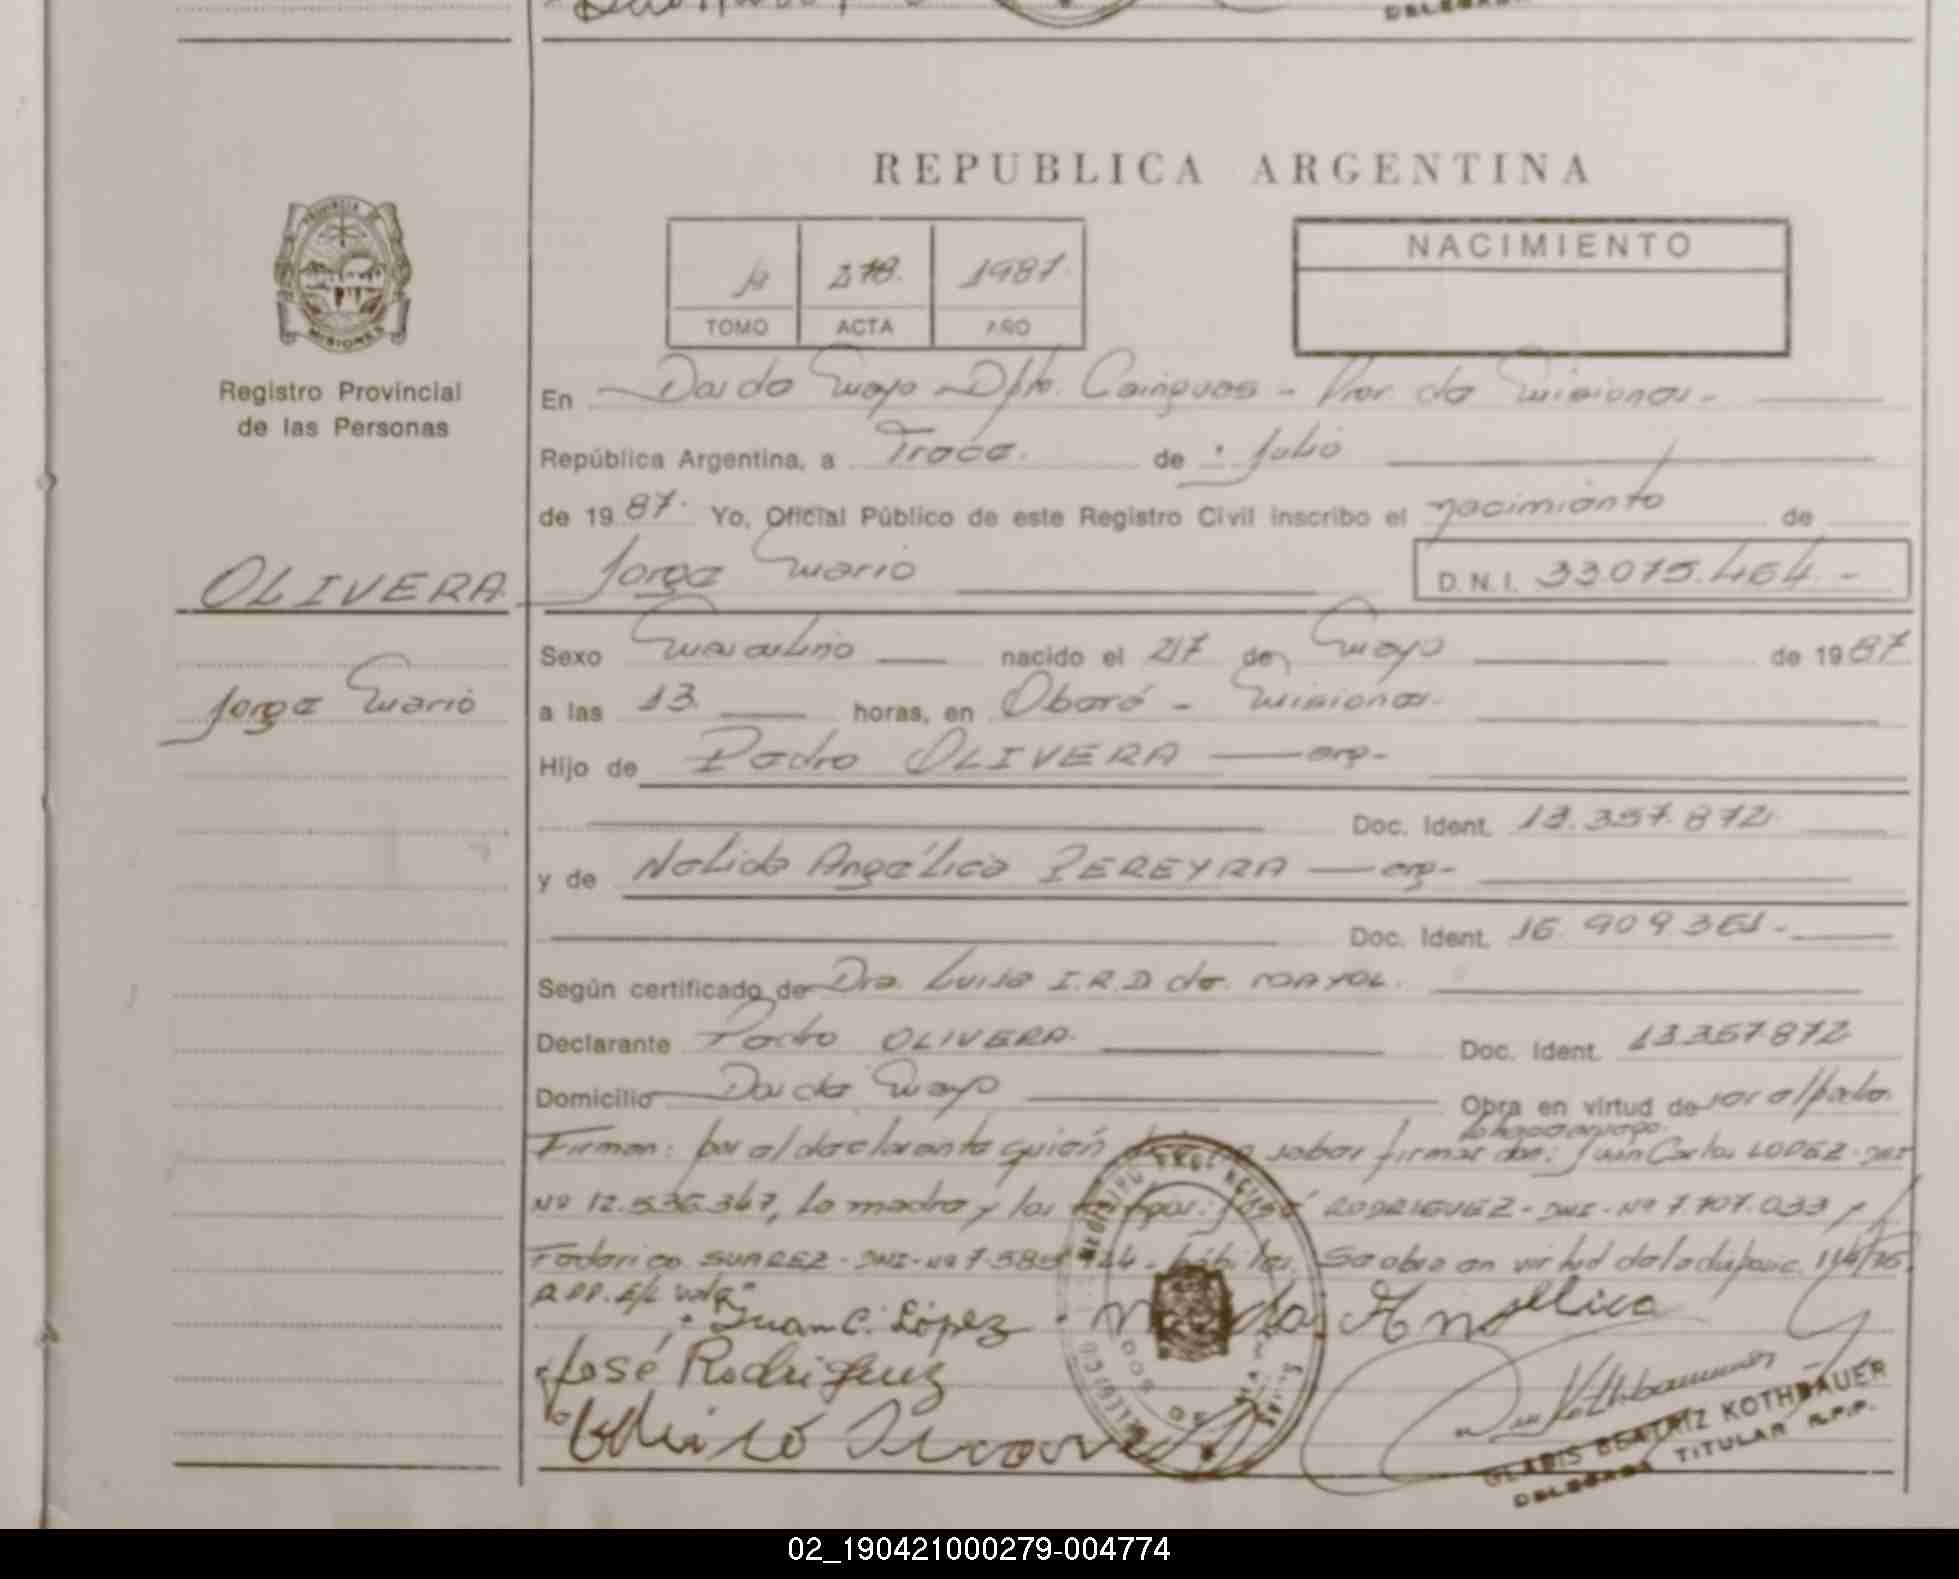 REPUBLICA ARGENTINA
PROVINCIA DE
MISIONES
Registro Provincial
de las Personas
1º 278. 1987.
TOMO ACTA AÑO
NACIMIENTO
En Dos de Mayo - Dpto. Cainguas - Prov. de Misiones. -
República Argentina, a Trece. de Julio
de 19 87. Yo, Oficial Público de este Registro Civil inscribo el nacimiento de
OLIVERA Jorge Mario D.N.I. 33.075.464. -
Sexo Masculino nacido el 27 de Mayo de 19 87
Jorge Mario
a las 13. horas, en Oberá - Misiones.
Hijo de Pedro OLIVERA arg-
Doc. Ident. 13.357.872.
y de Nelida Angélica PEREYRA arg-
Doc. Ident. 16.909.361.-
Según certificado de Dra. Luisa I.R.D de. MAYOL.
Declarante Pedro OLIVERA. Doc. Ident. 13.357.872
Domicilio Dos de Mayo Obra en virtud de ser el padre.
Firman: por el declarante quién no sabar firmar don: Juan Carlos LOPEZ - DNI
Nº 12.536.367, la madre y los testigos: José RODRIGUEZ - DNI - Nº 7.707.033 y
Federico SUAREZ - DNI - Nº 7.585 hábiles. Se obra en virtud de la disposic. 114/76.
R.P.P. E/L "vale"
Juan C. López Angelica
José Rodriguez
GLADIS BEATRIZ KOTHBAUER
DELEGADA TITULAR R.P.P.
02_190421000279-004774